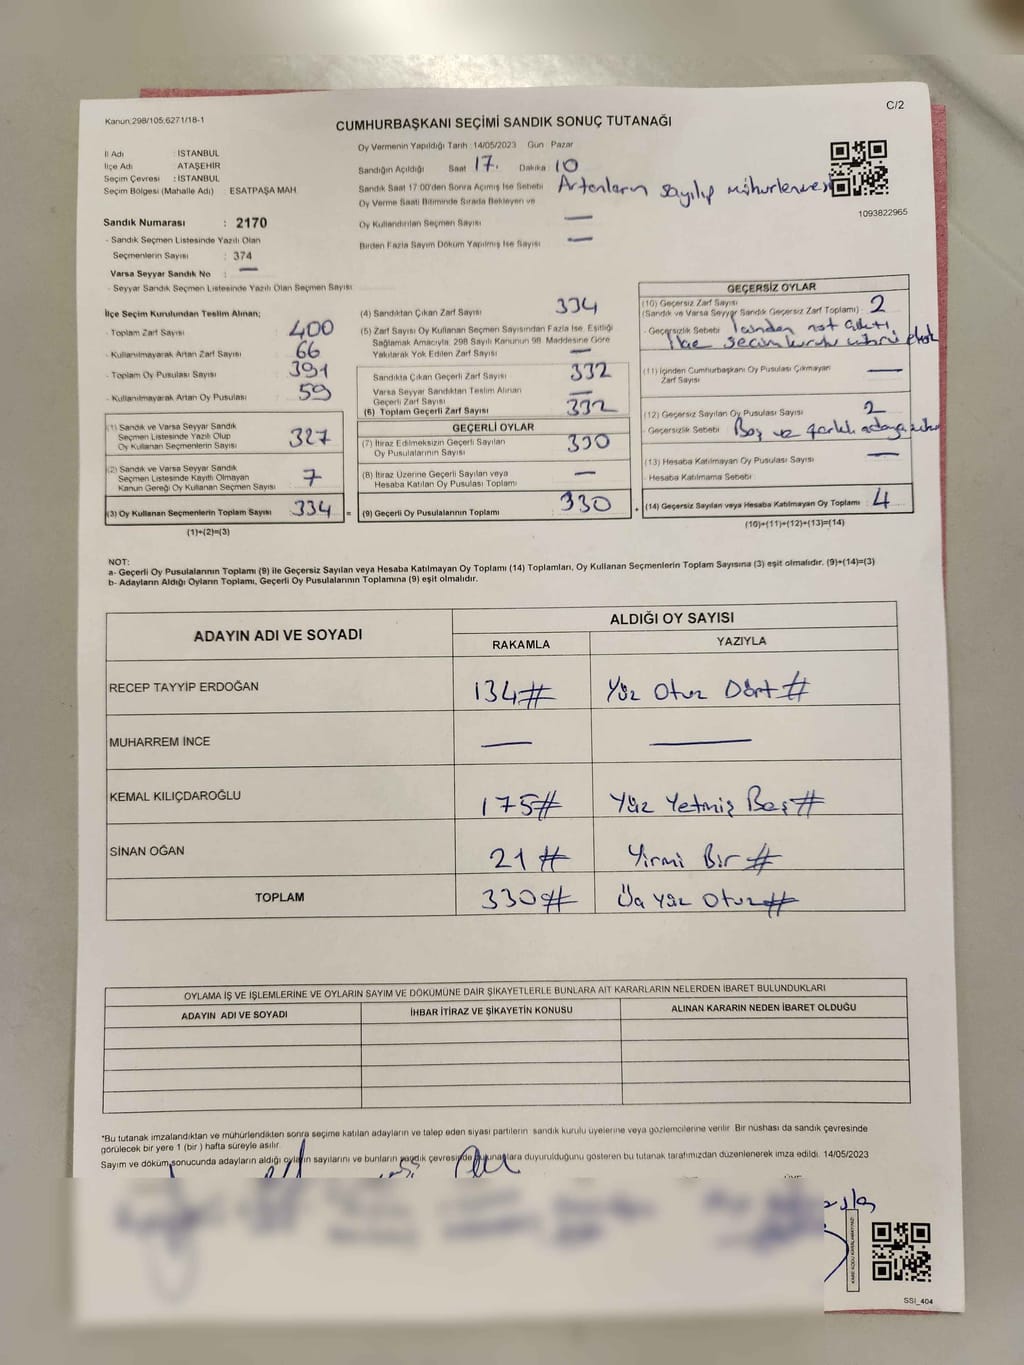 C/2
Kanun:298/105;6271/18-1
CUMHURBAŞKANI SEÇİMİ SANDIK SONUÇ TUTANAĞI
İl Adı : İSTANBUL
İlçe Adı : ATAŞEHİR
Seçim Çevresi : İSTANBUL
Seçim Bölgesi (Mahalle Adı) ESATPAŞA MAH
Sandık Numarası : 2170
- Sandık Seçmen Listesinde Yazılı Olan
Seçmenlerin Sayısı : 374
Varsa Seyyar Sandık No : —
- Seyyar Sandık Seçmen Listesinde Yazılı Olan Seçmen Sayısı:
Oy Vermenin Yapıldığı Tarih :14/05/2023 Gün Pazar
Sandığın Açıldığı Saat 17. Dakika 10
Sandık Saat 17:00'den Sonra Açımış İse Sebebi Artanların sayılıp mühürlenmesi
Oy Verme Saati Bitiminde Sırada Bekleyen ve
Oy Kullandırılan Seçmen Sayısı —
Birden Fazla Sayım Döküm Yapılmış İse Sayısı —
1093822965
İlçe Seçim Kurulundan Teslim Alınan;
- Toplam Zarf Sayısı 400
- Kullanılmayarak Artan Zarf Sayısı 66
- Toplam Oy Pusulası Sayısı 391
- Kullanılmayarak Artan Oy Pusulası 59
(1) Sandık ve Varsa Seyyar Sandık
Seçmen Listesinde Yazılı Olup
Oy Kullanan Seçmenlerin Sayısı 327
(2) Sandık ve Varsa Seyyar Sandık
Seçmen Listesinde Kayıtlı Olmayan
Kanun Gereği Oy Kullanan Seçmen Sayısı 7
(3) Oy Kullanan Seçmenlerin Toplam Sayısı 334 =
(1)+(2)=(3)
(4) Sandıktan Çıkan Zarf Sayısı 334
(5) Zarf Sayısı Oy Kullanan Seçmen Sayısından Fazla İse, Eşitliği
Sağlamak Amacıyla, 298 Sayılı Kanunun 98. Maddesine Göre
Yakılarak Yok Edilen Zarf Sayısı —
Sandıkta Çıkan Geçerli Zarf Sayısı 332
Varsa Seyyar Sandıktan Teslim Alınan
Geçerli Zarf Sayısı —
(6) Toplam Geçerli Zarf Sayısı 332
GEÇERLİ OYLAR
(7) İtiraz Edilmeksizin Geçerli Sayılan
Oy Pusulalarının Sayısı 330
(8) İtiraz Üzerine Geçerli Sayılan veya
Hesaba Katılan Oy Pusulası Toplamı —
(9) Geçerli Oy Pusulalarının Toplamı 330 +
GEÇERSİZ OYLAR
(10) Geçersiz Zarf Sayısı 2
(Sandık ve Varsa Seyyar Sandık Geçersiz Zarf Toplamı)
- Geçersizlik Sebebi İçinden not çıktı
İlçe seçim kurulu mührü
(11) İçinden Cumhurbaşkanı Oy Pusulası Çıkmayan
Zarf Sayısı —
(12) Geçersiz Sayılan Oy Pusulası Sayısı 2
- Geçersizlik Sebebi Boş ve farklı adaya
(13) Hesaba Katılmayan Oy Pusulası Sayısı —
- Hesaba Katılmama Sebebi
(14) Geçersiz Sayılan veya Hesaba Katılmayan Oy Toplamı 4
(10)+(11)+(12)+(13)=(14)
NOT:
a- Geçerli Oy Pusulalarının Toplamı (9) ile Geçersiz Sayılan veya Hesaba Katılmayan Oy Toplamı (14) Toplamları, Oy Kullanan Seçmenlerin Toplam Sayısına (3) eşit olmalıdır. (9)+(14)=(3)
b- Adayların Aldığı Oyların Toplamı, Geçerli Oy Pusulalarının Toplamına (9) eşit olmalıdır.
ADAYIN ADI VE SOYADI
ALDIĞI OY SAYISI
RAKAMLA YAZIYLA
RECEP TAYYİP ERDOĞAN 134# Yüz Otuz Dört #
MUHARREM İNCE — —
KEMAL KILIÇDAROĞLU 175# Yüz Yetmiş Beş #
SİNAN OĞAN 21 # Yirmi Bir #
TOPLAM 330# Üç Yüz Otuz #
OYLAMA İŞ VE İŞLEMLERİNE VE OYLARIN SAYIM VE DÖKÜMÜNE DAİR ŞİKAYETLERLE BUNLARA AİT KARARLARIN NELERDEN İBARET BULUNDUKLARI
ADAYIN ADI VE SOYADI İHBAR İTİRAZ VE ŞİKAYETİN KONUSU ALINAN KARARIN NEDEN İBARET OLDUĞU
*Bu tutanak imzalandıktan ve mühürlendikten sonra seçime katılan adayların ve talep eden siyasi partilerin sandık kurulu üyelerine veya gözlemcilerine verilir. Bir nüshası da sandık çevresinde
görülecek bir yere 1 (bir ) hafta süreyle asılır.
Sayım ve döküm sonucunda adayların aldığı oyların sayılarını ve bunların sandık çevresinde bulunanlara duyurulduğunu gösteren bu tutanak tarafımızdan düzenlenerek imza edildi. 14/05/2023
SSI_404